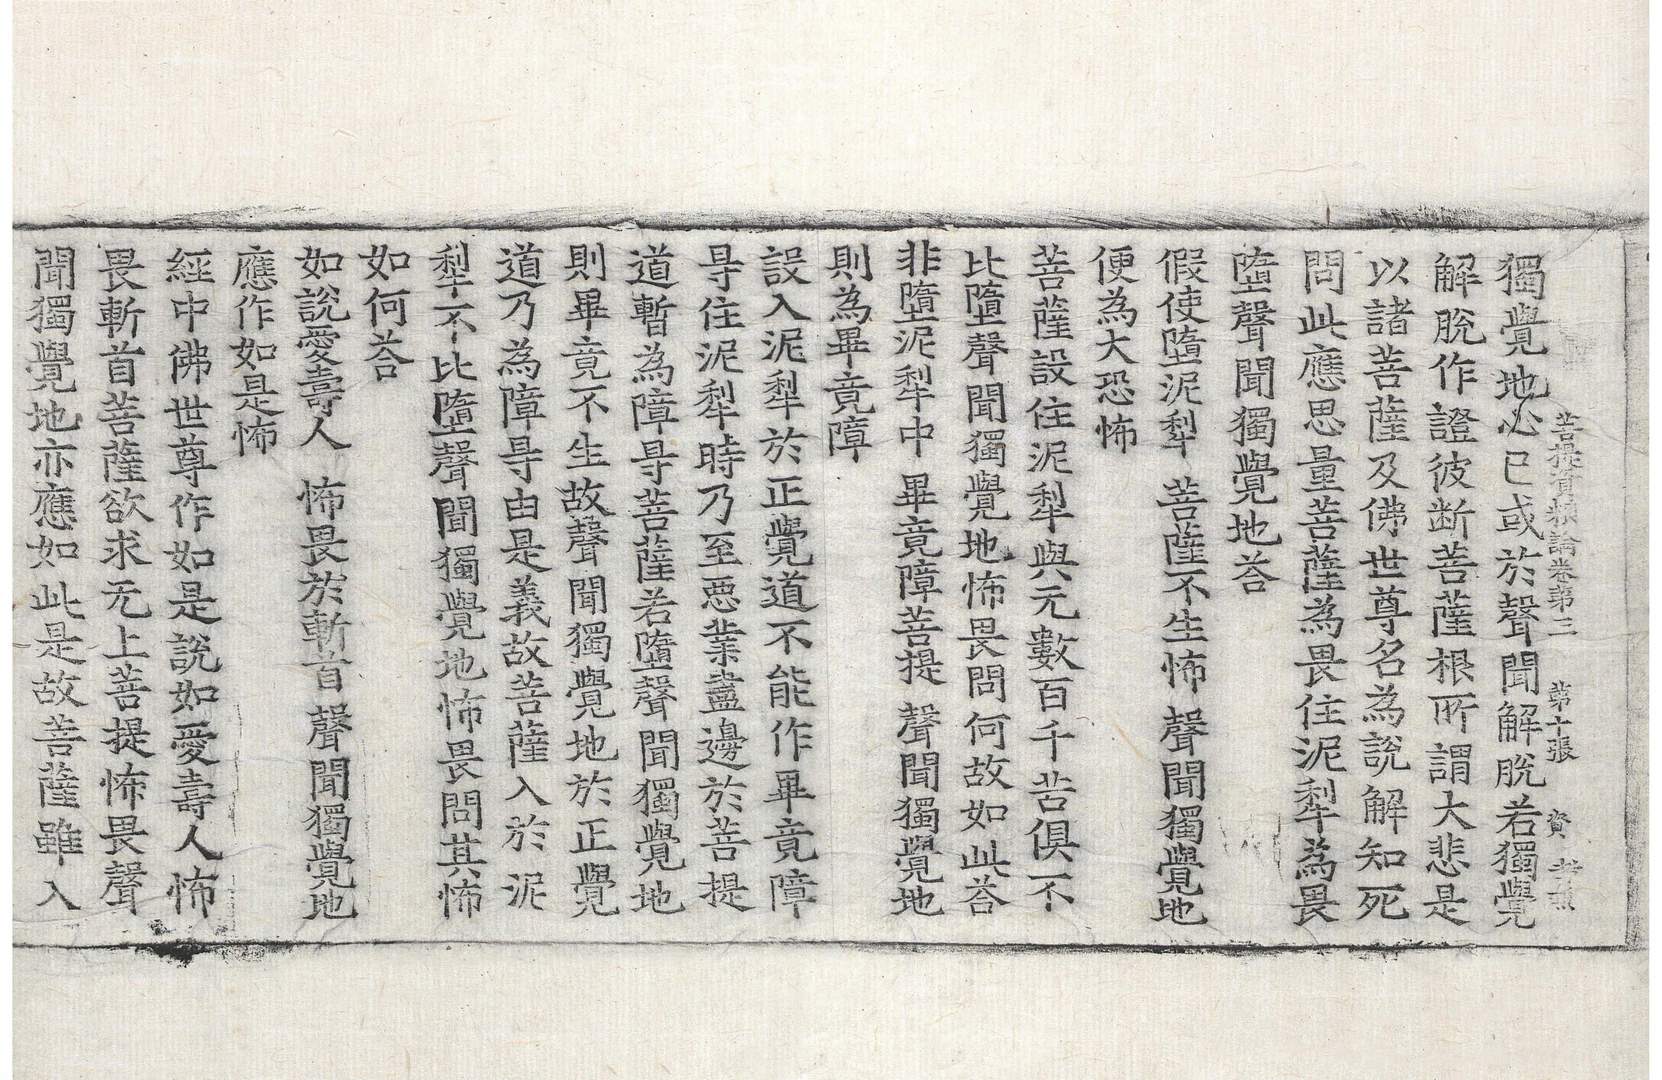 菩提資粮論卷第三　第十張　資
獨覺地必已或於聲聞解脫若獨覺
解脫作證彼断菩薩根所謂大悲是
以諸菩薩及佛世尊名為說解知死
問此應思量菩薩為畏住泥犁為畏
墮聲聞獨覺地荅
假使墮泥犁　菩薩不生怖　聲聞獨覺地
便為大恐怖
菩薩設住泥犁與无數百千苦俱不
比墮聲聞獨覺地怖畏問何故如此荅
非墮泥犁中　畢竟障菩提　聲聞獨覺地
則為畢竟障
設入泥犁於正覺道不能作畢竟障
㝵住泥犁時乃至惡業盡邊於菩提
道暫為障㝵菩薩若墮聲聞獨覺地
則畢竟不生故聲聞獨覺地於正覺
道乃為障㝵由是義故菩薩入於泥
犁不比墮聲聞獨覺地怖畏問其怖
如何荅
如說愛壽人　怖畏於斬首　聲聞獨覺地
應作如是怖
經中佛世尊作如是說如愛壽人怖
畏斬首菩薩欲求无上菩提怖畏聲
聞獨覺地亦應如此是故菩薩雖入